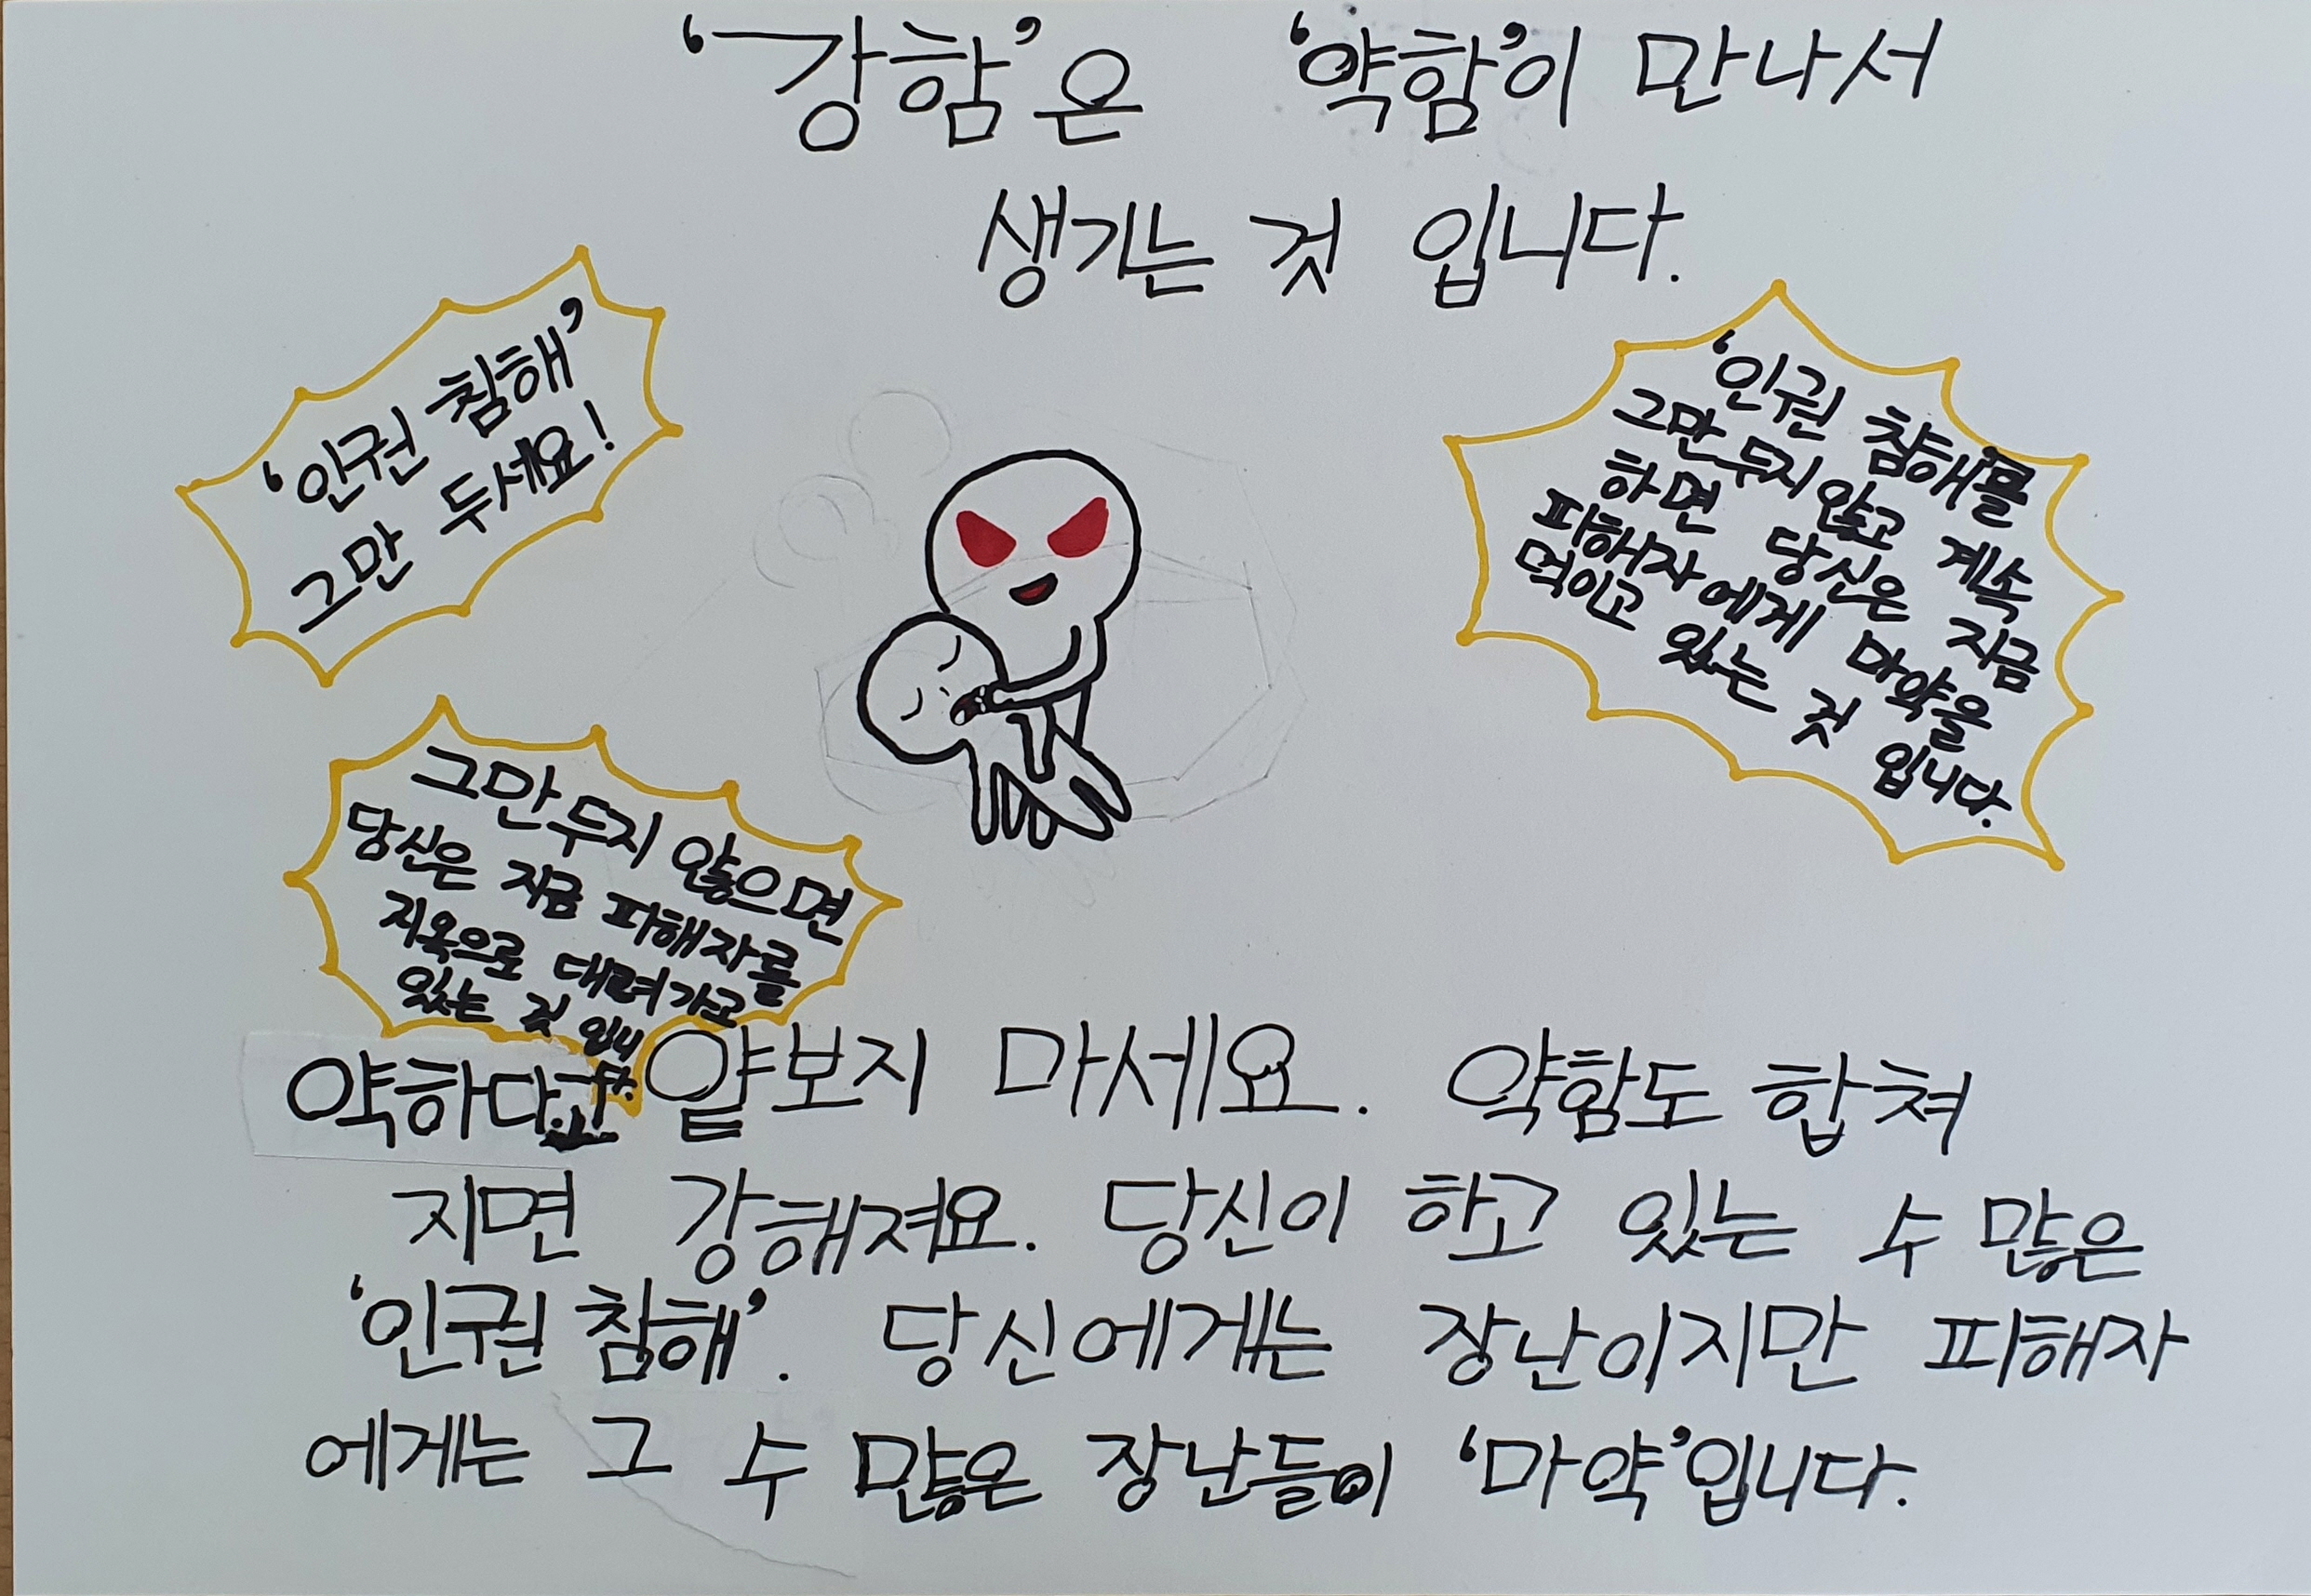 '강함'은 '약함'이 만나서
생기는 것 입니다.
'인권 침해'
그만 두세요!
'인권 침해'를
그만두지 않고 계속
하면 당신은 지금
피해자에게 마약을
먹이고 있는 것 입니다.
그만두지 않으면
당신은 지금 피해자를
지옥으로 대려가고
있는 것 입니
다.
약하다고 얕보지 마세요. 약함도 합쳐
지면 강해져요. 당신이 하고 있는 수 많은
'인권 침해'. 당신에게는 장난이지만 피해자
에게는 그 수 많은 장난들이 '마약'입니다.